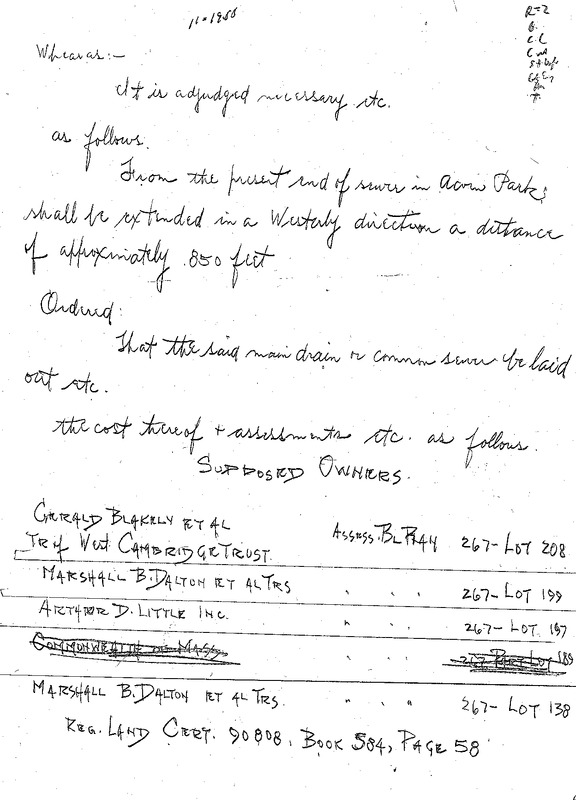 Whereas:-
It is adjudged necessary etc.
as follows.
From the present end of sewer in Acorn Park;
shall be extended in a Westerly direction a distance
of approximately 850 feet
Ordered:
That the said main drain or common sewer be laid
out etc.
the cost thereof + assessments etc. as follows.
SUPPOSED OWNERS.
GERALD BLAKELY ET AL
TR of West CAMBRIDGE TRUST. ASSESS. BL PLAN 267-LOT 208
MARSHALL B. DALTON ET AL TRS " " " 267-LOT 199
ARTHUR D. LITTLE INC. " " " 267-LOT 197
COMMONWEALTH OF MASS " " " 267 PART LOT 189
MARSHALL B. DALTON ET AL TRS. " " " 267-LOT 138
REG. LAND CERT. 90808, BOOK 584, PAGE 58